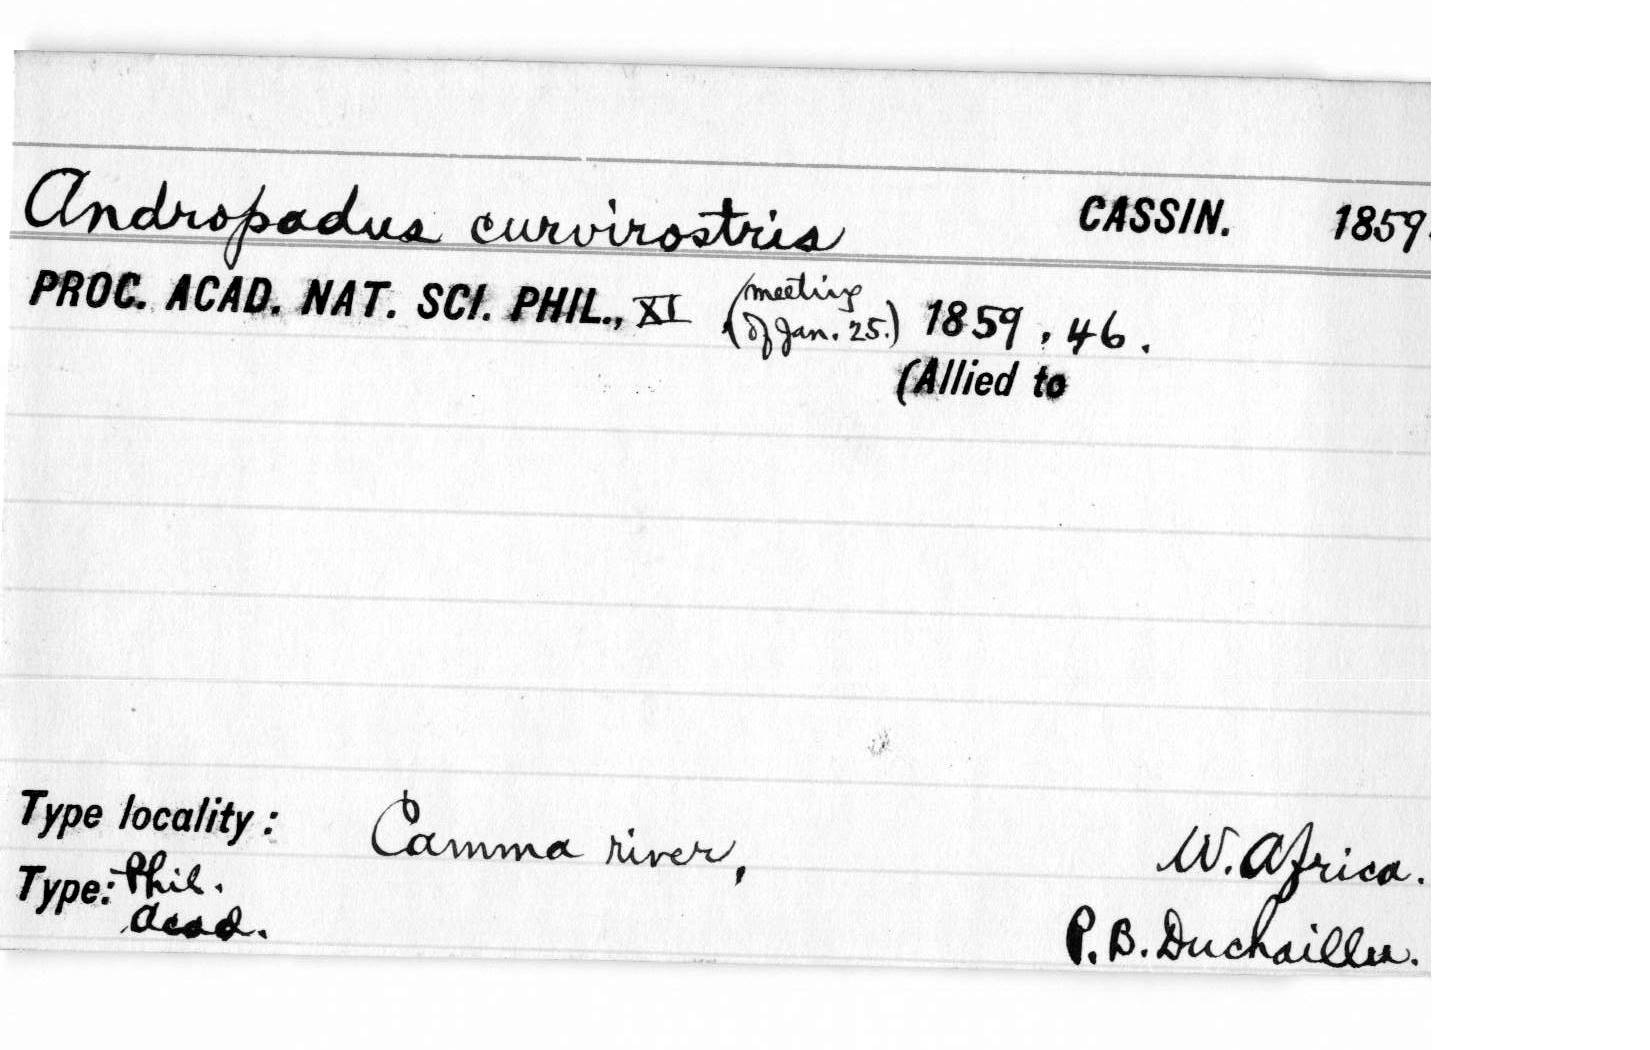 Andropadus curvirostris CASSIN. 1859.
PROC. ACAD. NAT. SCI. PHIL., XI (meeting of Jan. 25.) 1859, 46.
(Allied to
Type locality: Camma river, W. Africa.
Type: Phil. Acad. P. B. Duchaillu.